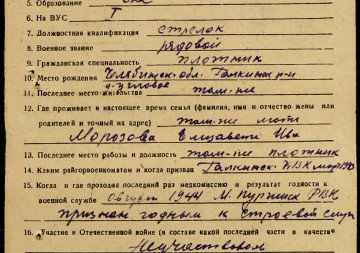 5. Образование
6. На ВУС Т
7. Должностная квалификация стрелок
8. Военное звание рядовой
9. Гражданская специальность плотник
10. Место рождения Челябинск. обл. Галкинск р-н
д. Угловое
11. Последнее место жительства там-же
12. Где проживает в настоящее время семья (фамилия, имя и отчество жены или
родителей и точный их адрес) там-же мать
Морозова Елизавета Ив
13. Последнее место работы и должность там-же плотник
14. Каким райгорвоенкоматом и когда призван Галкинск. РВК март
15. Когда и где проходил последний раз медкомиссию и результат годности к
военной службе Август 1944 РВК
признан годным к строевой служ
16. Участие в Отечественной войне (в составе какой последней части и в качестве
Не участвовал